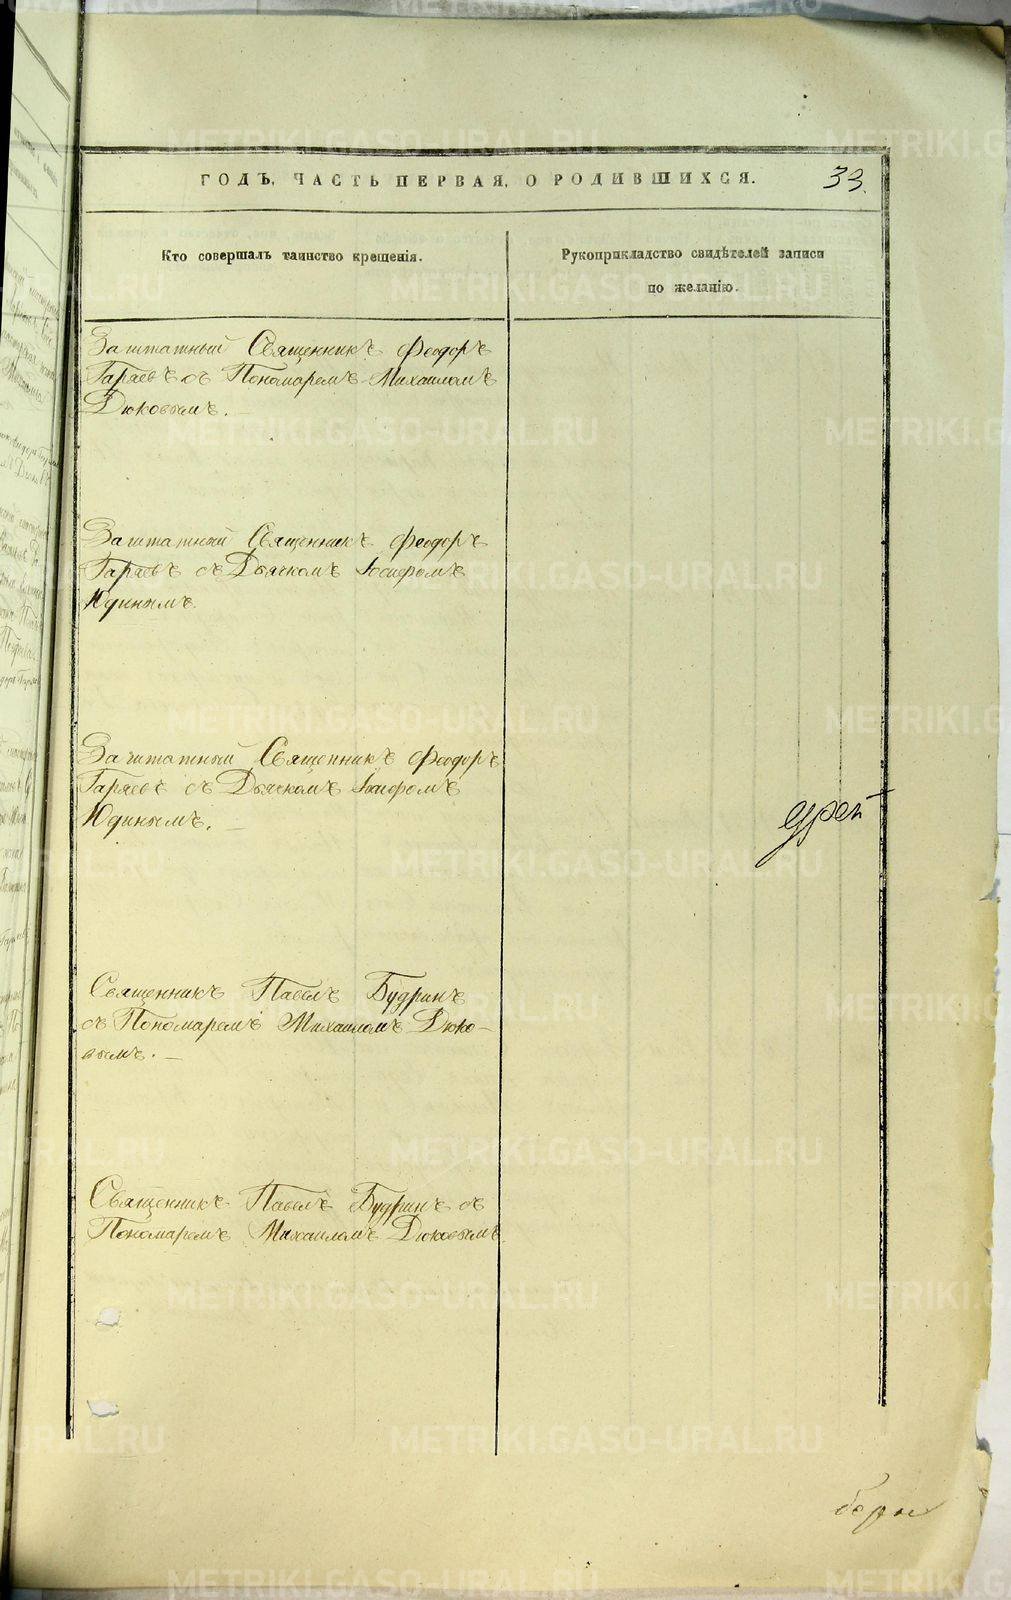 ГОДЪ, ЧАСТЬ ПЕРВАЯ, О РОДИВШИХСЯ.
33.
Кто совершалъ таинство крещенія.
Рукоприкладство свидѣтелей записи
по желанію.
Заштатный Священникъ Феодоръ
Гаряевъ съ Пономаремъ Михаиломъ
Дюковымъ.
Заштатный Священникъ Феодоръ
Гаряевъ съ Дьячкомъ Іосифомъ
Юдинымъ.
Заштатный Священникъ Феодоръ
Гаряевъ съ Дьячкомъ Іосифомъ
Юдинымъ.
Священникъ Павелъ Будринъ
съ Пономаремъ Михаиломъ Дюко-
вымъ.
Священникъ Павелъ Будринъ съ
Пономаремъ Михаиломъ Дюковымъ.
METRIKI.GASO-URAL.RU